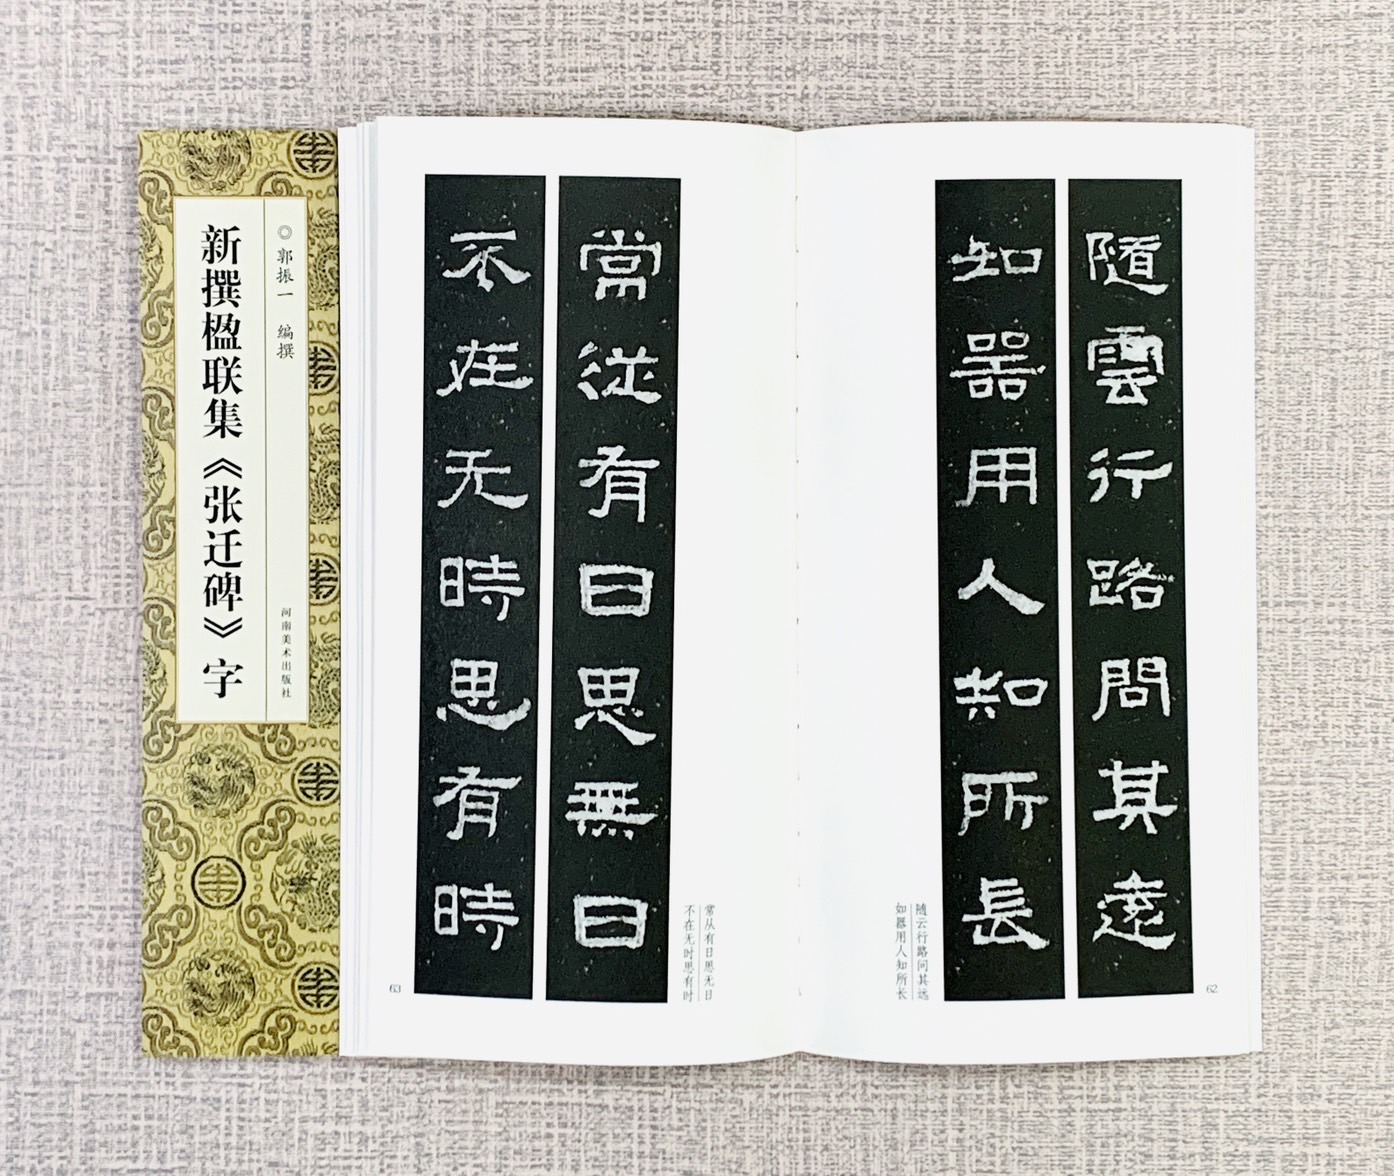 ◎郭振一 编撰
河南美术出版社
新撰楹联集《张迁碑》字
隨雲行路問其遠
如器用人知所長
随云行路问其远
如器用人知所长
62
常從有日思無日
不在无時思有時
常从有日思无日
不在无时思有时
63